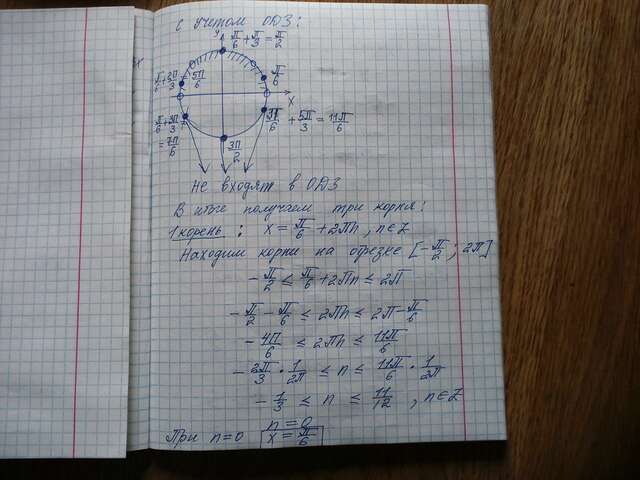 С учетом ОДЗ:
y
π/6 + π/3 = π/2
π/6
π/6 + 2π/3 = 5π/6
x
π/6 + 3π/3 =
= 7π/6
3π/2
+ 5π/3 = 11π/6
Не входят в ОДЗ
В итоге получаем три корня:
1 корень: x = π/6 + 2πn, n∈Z
Находим корни на отрезке [-π/2; 2π]
-π/2 ≤ π/6 + 2πn ≤ 2π
-π/2 - π/6 ≤ 2πn ≤ 2π - π/6
-4π/6 ≤ 2πn ≤ 11π/6
-2π/3 · 1/2π ≤ n ≤ 11π/6 · 1/2π
-1/3 ≤ n ≤ 11/12, n∈Z
n = 0
При n=0 x = π/6